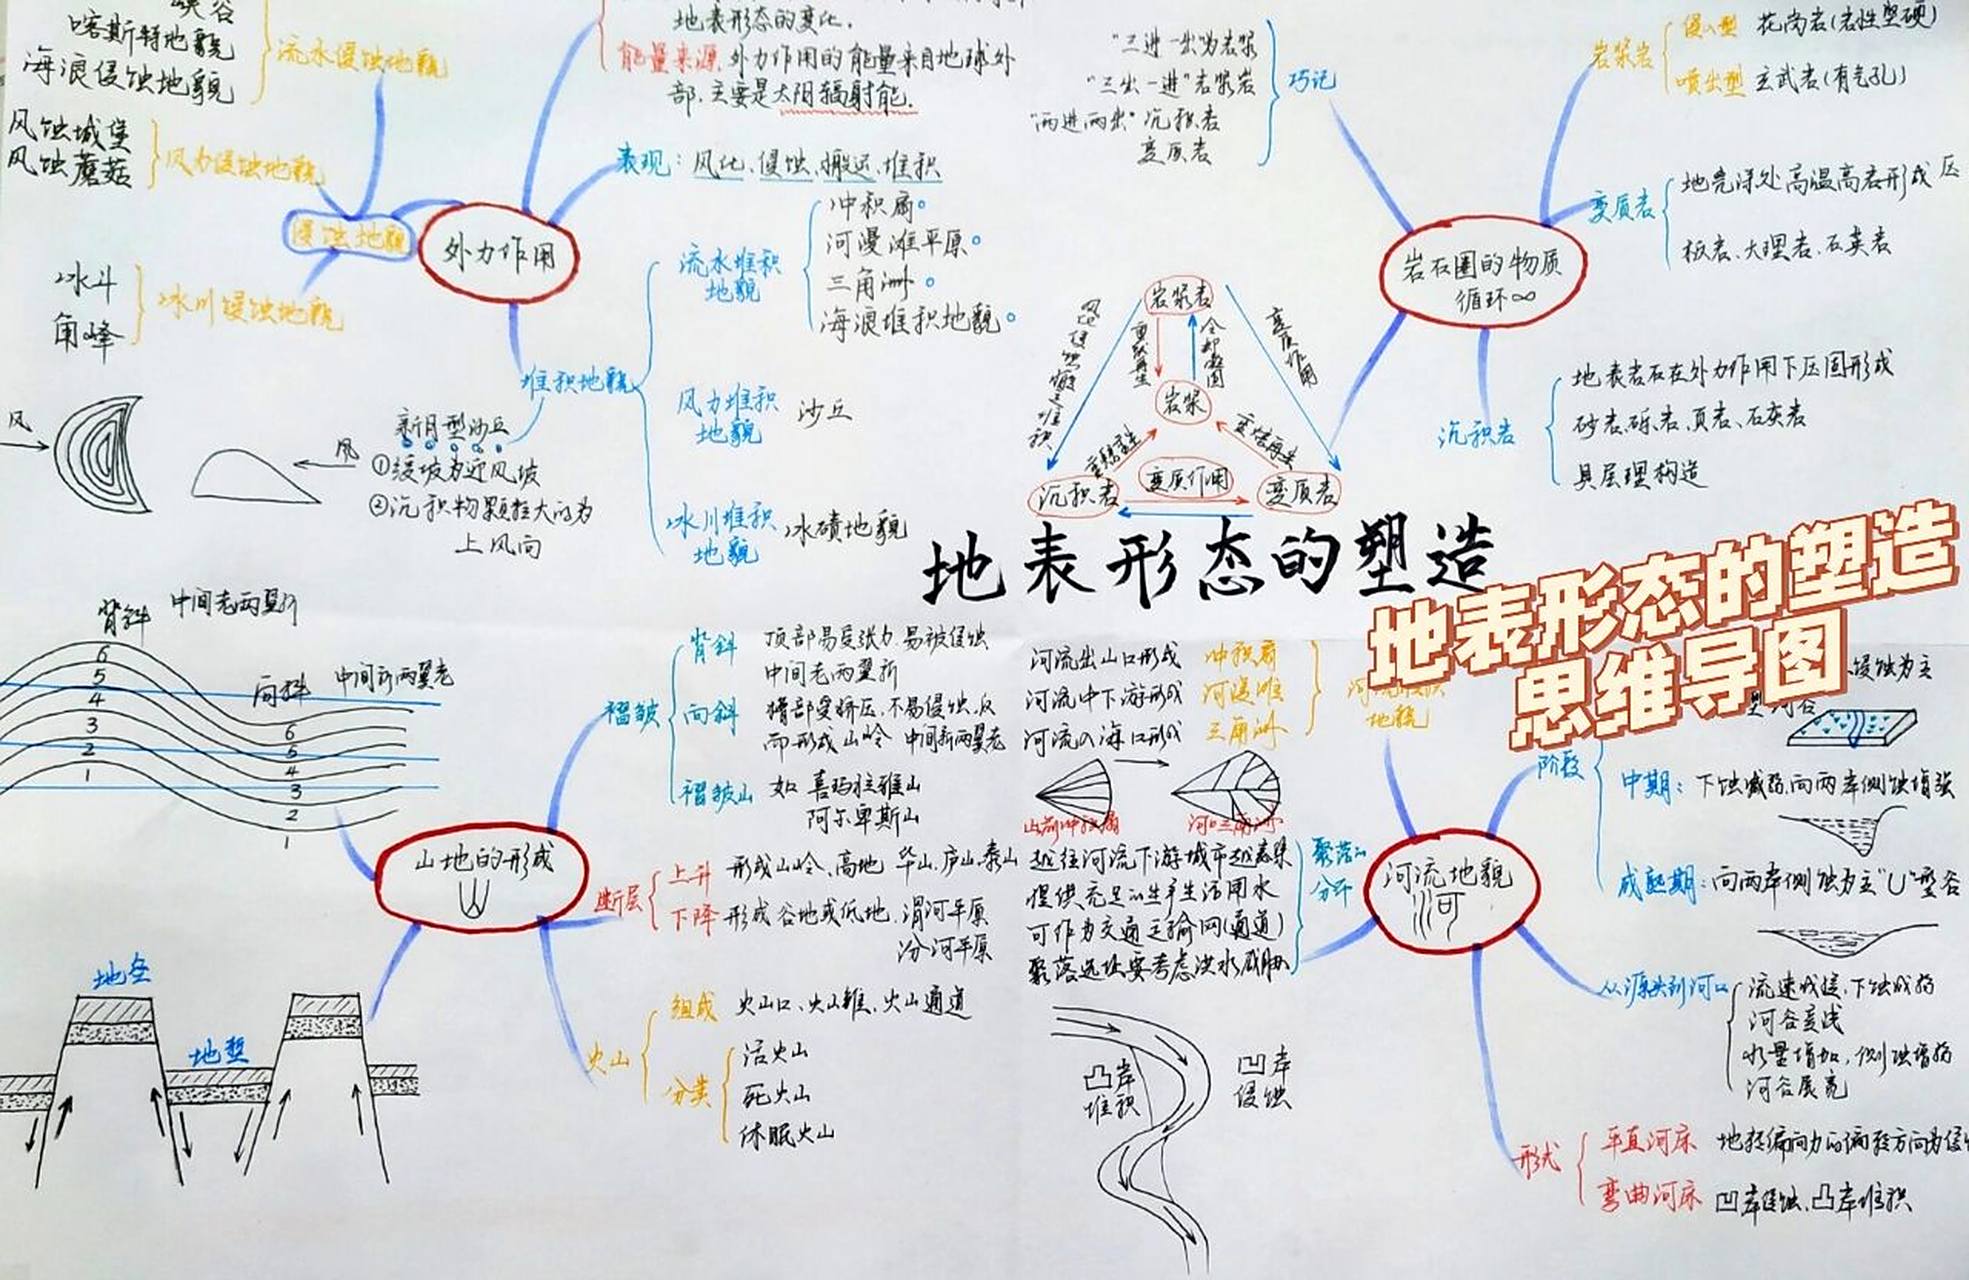 喀斯特地貌
海浪侵蚀地貌
流水侵蚀地貌
风蚀城堡
风蚀蘑菇
风力侵蚀地貌
侵蚀地貌
冰斗
角峰
冰川侵蚀地貌
外力作用
地表形态的变化.
能量来源.外力作用的能量来自地球外
部.主要是太阳辐射能.
表现：风化、侵蚀、搬运、堆积
堆积地貌
流水堆积
地貌
冲积扇
河漫滩平原
三角洲
海浪堆积地貌
风力堆积
地貌
沙丘
冰川堆积
地貌
冰碛地貌
风
风
新月型沙丘
①缓坡为迎风坡
②沉积物颗粒大的为
上风向
"三进一出"为岩浆
"三出一进"岩浆岩
"两进两出"沉积岩
变质岩
巧记
岩石圈的物质
循环∞
岩浆岩
侵入型 花岗岩(岩性坚硬)
喷出型 玄武岩(有气孔)
变质岩
地壳深处高温高岩形成 压
板岩、大理岩、石英岩
沉积岩
地表岩石在外力作用下压固形成
砂岩、砾岩、页岩、石灰岩
具层理构造
岩浆岩
风化侵蚀搬运堆积
重熔再生
冷却凝固
变质作用
岩浆
重熔再生
重熔再生
沉积岩
变质作用
变质岩
地表形态的塑造
地表形态的塑造
思维导图
背斜 中间老两翼新
向斜 中间新两翼老
6
5
4
3
2
1
6
5
4
3
2
1
山地的形成
褶皱
背斜 顶部易受张力.易被侵蚀
中间老两翼新
向斜 槽部受挤压.不易侵蚀.反
而形成山岭 中间新两翼老
褶皱山 如 喜玛拉雅山
阿尔卑斯山
断层
上升 形成山岭、高地 华山.庐山.泰山
下降 形成谷地或低地.渭河平原
汾河平原
火山
组成 火山口、火山锥、火山通道
分类
活火山
死火山
休眠火山
地垒
地堑
河流出山口形成 冲积扇
河流中下游形成 河漫滩
河流入海口形成 三角洲
地貌
山前冲积扇
河口三角洲
越往河流下游城市越密集
提供充足的生产生活用水
可作为交通运输网(通道)
聚落选址要考虑洪水威胁
聚落的
分布
河流地貌
河
阶段
侵蚀为主
中期：下蚀减弱.向两岸侧蚀增强
成熟期：向两岸侧蚀为主"U"型谷
从源头到河口
流速成缓.下蚀成弱
河谷变浅
水量增加，侧蚀增强
河谷展宽
形式
平直河床 地转偏向力的偏转方向为侵蚀
弯曲河床 凹岸侵蚀.凸岸堆积
凸岸
堆积
凹岸
侵蚀